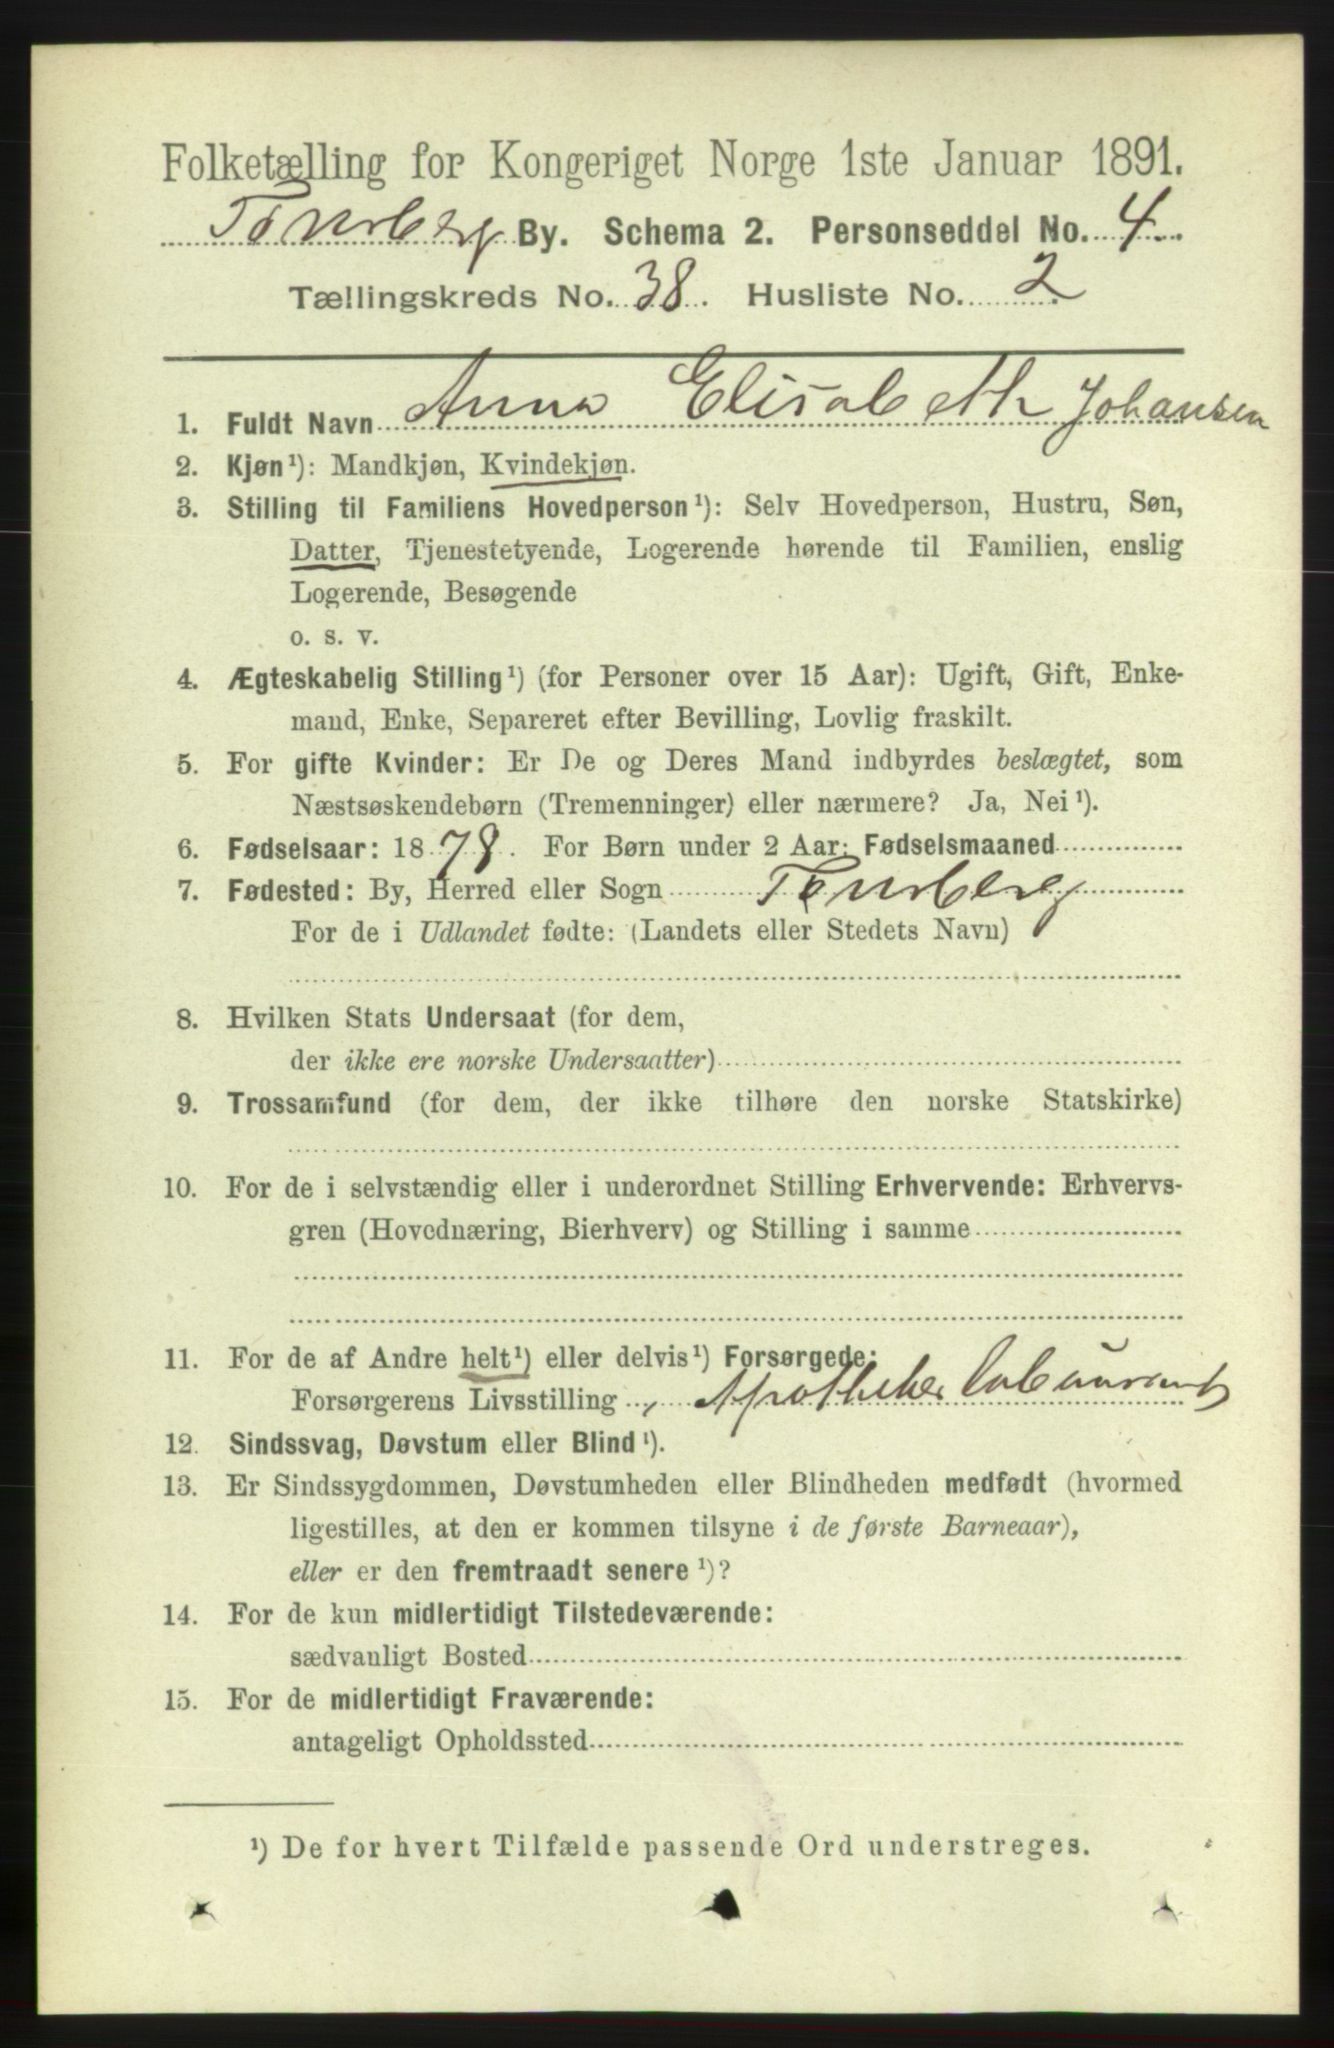 Folketælling for Kongeriget Norge 1ste Januar 1891.
Tønsberg By. Schema 2. Personseddel No. 4.
Tællingskreds No. 38. Husliste No. 2.
1. Fuldt Navn Anna Elisabeth Johansen
2. Kjøn¹): Mandkjøn, Kvindekjøn.
3. Stilling til Familiens Hovedperson¹): Selv Hovedperson, Hustru, Søn,
Datter, Tjenestetyende, Logerende hørende til Familien, enslig
Logerende, Besøgende
o. s. v.
4. Ægteskabelig Stilling¹) (for Personer over 15 Aar): Ugift, Gift, Enke-
mand, Enke, Separeret efter Bevilling, Lovlig fraskilt.
5. For gifte Kvinder: Er De og Deres Mand indbyrdes beslægtet, som
Næstsøskendebørn (Tremenninger) eller nærmere? Ja, Nei¹).
6. Fødselsaar: 1878. For Børn under 2 Aar: Fødselsmaaned
7. Fødested: By, Herred eller Sogn Tønsberg
For de i Udlandet fødte: (Landets eller Stedets Navn)
8. Hvilken Stats Undersaat (for dem,
der ikke ere norske Undersaatter)
9. Trossamfund (for dem, der ikke tilhøre den norske Statskirke)
10. For de i selvstændig eller i underordnet Stilling Erhvervende: Erhvervs-
gren (Hovednæring, Bierhverv) og Stilling i samme
11. For de af Andre helt¹) eller delvis¹) Forsørgede:
Forsørgerens Livsstilling Apotheker
12. Sindssvag, Døvstum eller Blind¹).
13. Er Sindssygdommen, Døvstumheden eller Blindheden medfødt (hvormed
ligestilles, at den er kommen tilsyne i de første Barneaar),
eller er den fremtraadt senere¹)?
14. For de kun midlertidigt Tilstedeværende:
sædvanligt Bosted
15. For de midlertidigt Fraværende:
antageligt Opholdssted
¹) De for hvert Tilfælde passende Ord understreges.